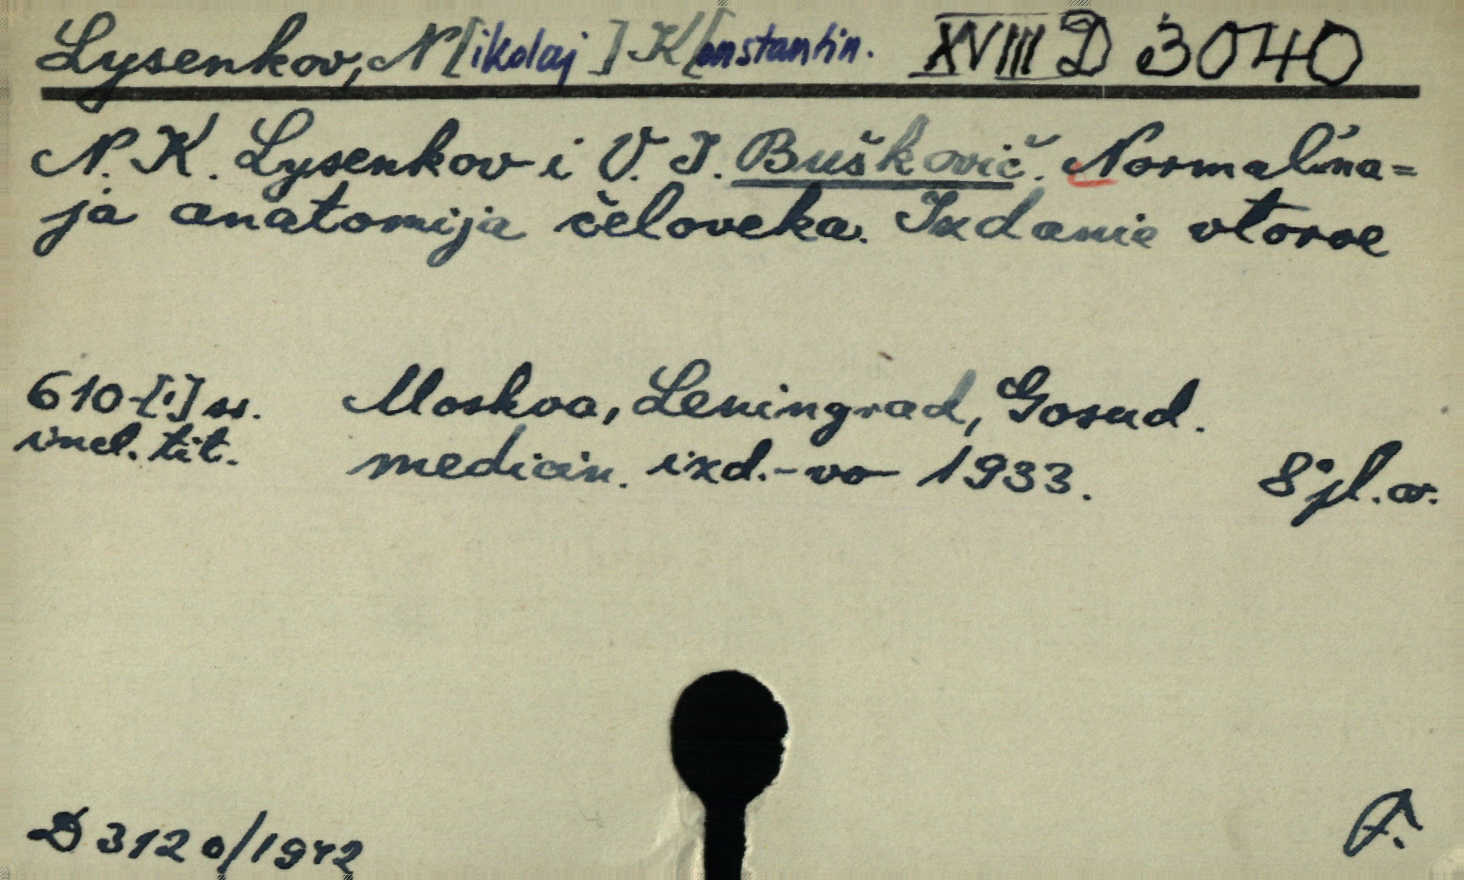 Lysenkov, N[ikolaj] K[onstantin. XVIII D 3040
N. K. Lysenkov i V. I. Buškovič. Normal'na=
ja anatomija čeloveka. Izdanie vtoroe
610-[1] ss. Moskva, Leningrad, Gosud.
incl. tit. medicin. izd.-vo 1933. 8°
D 3120/1942